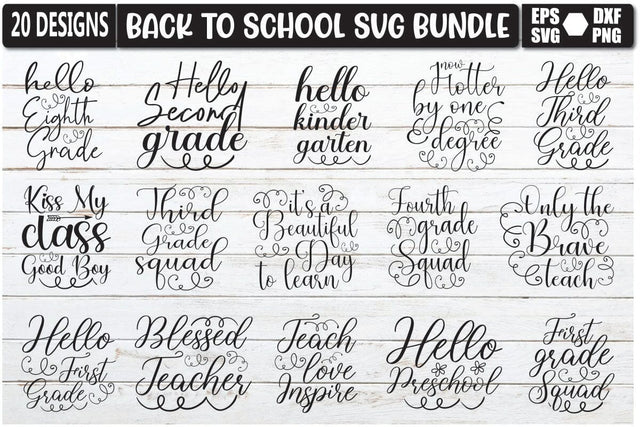 20 DESIGNS
BACK TO SCHOOL SVG BUNDLE
EPS DXF
SVG PNG
hello
Eighth
Grade
Hello
Second
grade
hello
kinder
garten
now
Hotter
by one
degree
Hello
Third
Grade
Kiss My
class
Good Boy
Third
Grade
squad
it's a
Beautiful
Day
to learn
Fourth
grade
Squad
Only the
Brave
teach
Hello
First
Grade
Blessed
Teacher
Teach
love
Inspire
Hello
Preschool
First
grade
Squad